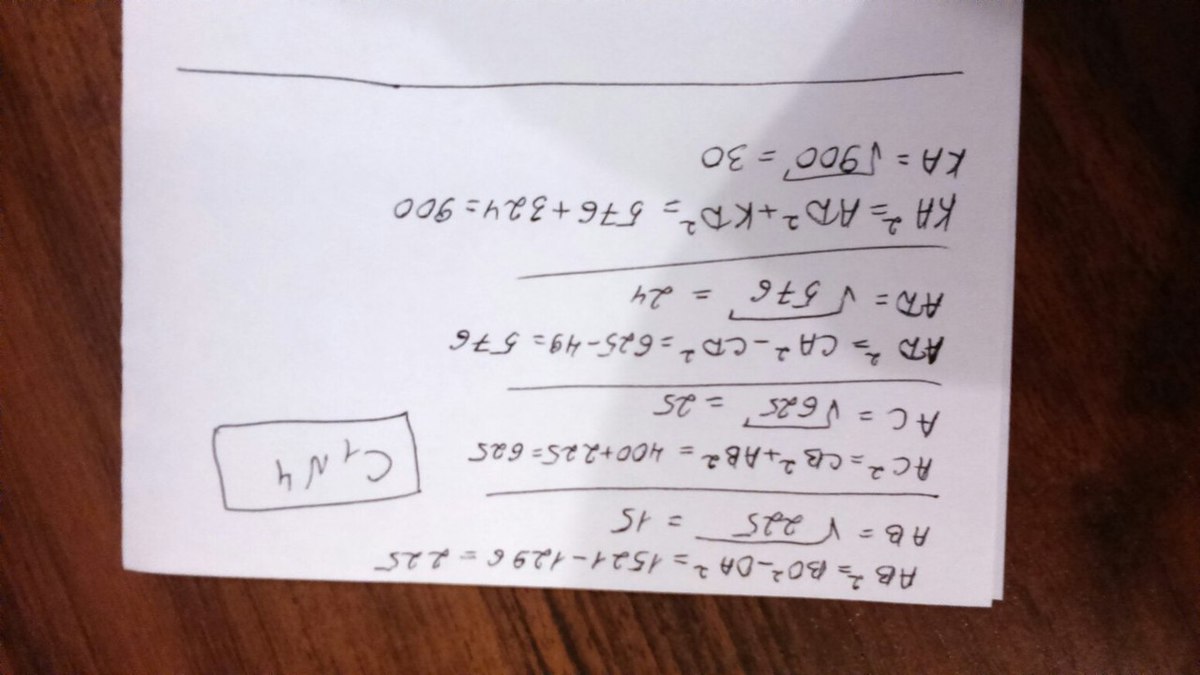 AB² = BO² - OA² = 1521 - 1296 = 225
AB = √225 = 15
AC² = CB² + AB² = 400 + 225 = 625
AC = √625 = 25
C₁ №4
AD² = CA² - CD² = 625 - 49 = 576
AD = √576 = 24
KA² = AD² + KD² = 576 + 324 = 900
KA = √900 = 30